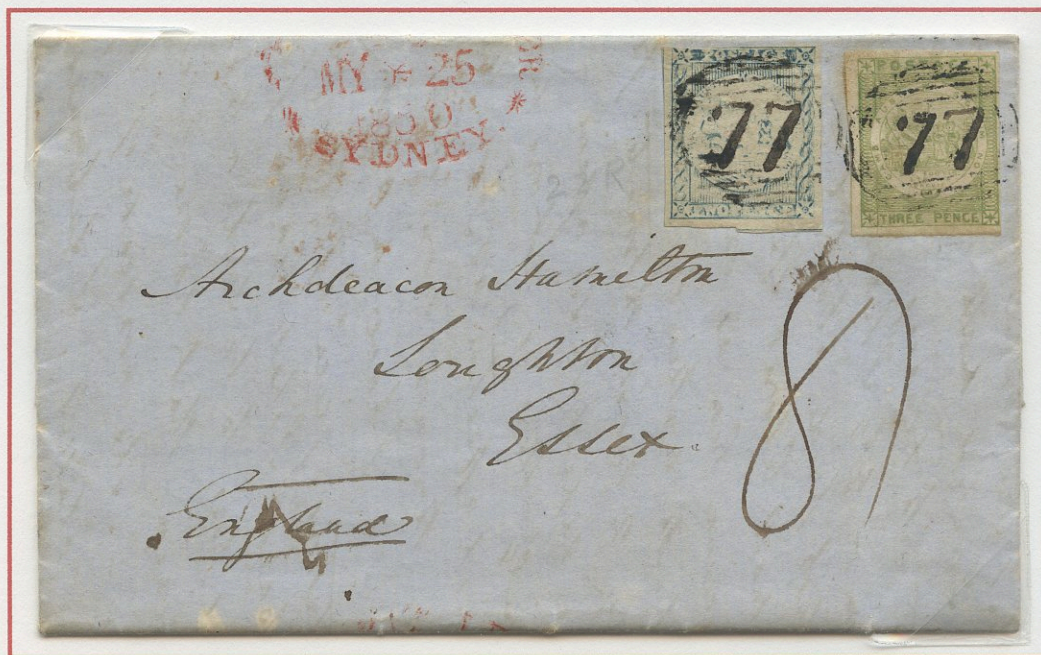 MY * 25
1850
SYDNEY
77
77
POSTAGE
THREE PENCE
Archdeacon Hamilton
Loughton
Essex.
England
8